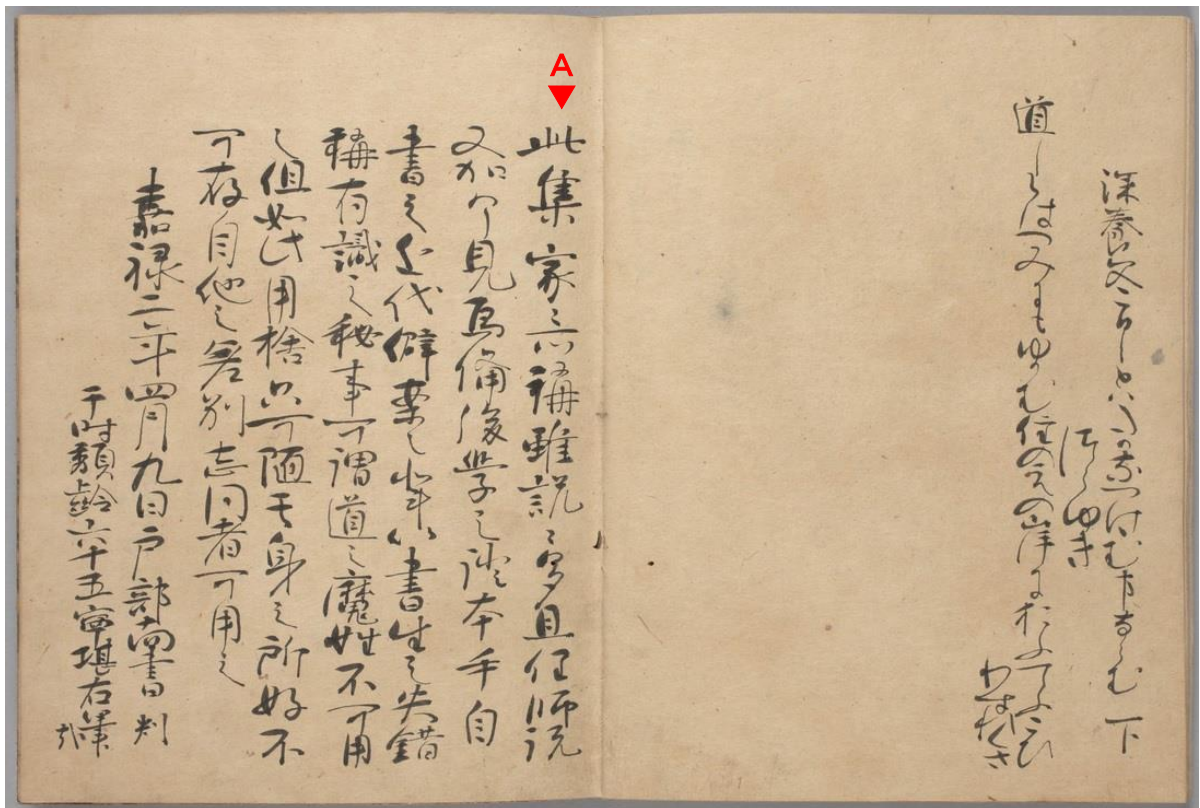 深養父 こひしとはたか名つけけむ事ならむ 下
つらゆき
道しらはつみにもゆかむ住の江の岸におふてふこひ
わすれくさ
A
此集家々所稱雖説々多且任師説
又加了見為備後學之證本手自
書之近代僻案之輩以書生之失錯
稱有識之秘事可謂道之魔姓不可用
之但如此用捨只可随其身之所好不
可存自他之差別志同者可用之
嘉禄二年四月九日戸部尚書判
于時頽齢六十五寧堪右筆
哉